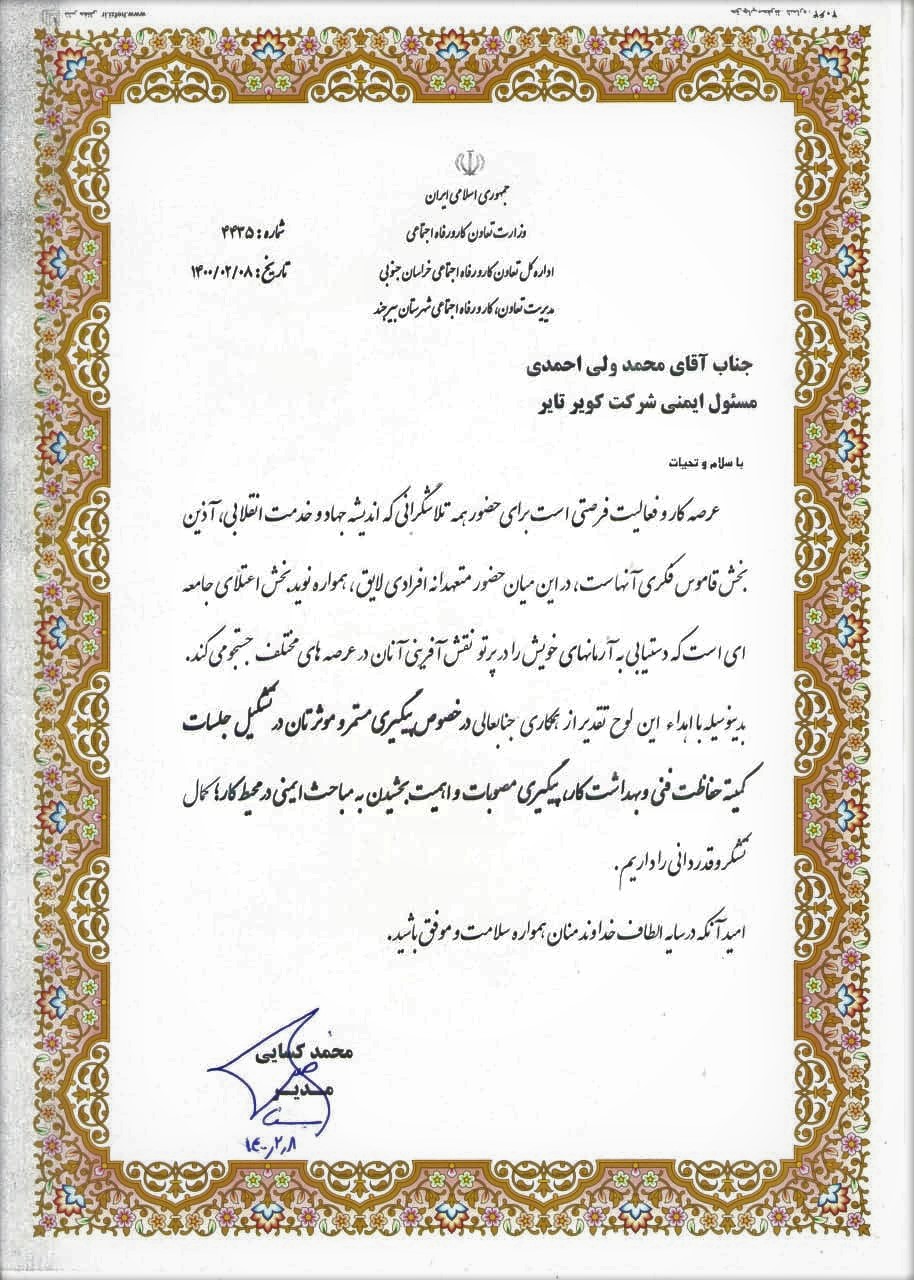 جمهوری اسلامی ایران
وزارت تعاون کار و رفاه اجتماعی
شماره: ۴۴۳۵
اداره کل تعاون کار و رفاه اجتماعی خراسان جنوبی
تاریخ: ۱۴۰۰/۰۲/۰۸
مدیریت تعاون، کار و رفاه اجتماعی شهرستان بیرجند
جناب آقای محمد ولی احمدی
مسئول ایمنی شرکت کویر تایر
با سلام و تحیات
عرصه کار و فعالیت فرصتی است برای حضور همه تلاشگرانی که اندیشه جهاد و خدمت انقلابی، آذین
بخش قاموس فکری آنهاست، در این میان حضور متعهدانه افرادی لایق، همواره نویدبخش اعتلای جامعه
ای است که دستیابی به آرمانهای خویش را در پرتو نقش آفرینی آنان در عرصه های مختلف جستجو می کند.
بدینوسیله با اهداء این لوح تقدیر از همکاری جنابعالی در خصوص پیگیری مستمر و موثرتان در تشکیل جلسات
کمیته حفاظت فنی و بهداشت کار، پیگیری مصوبات و اهمیت بخشیدن به مباحث ایمنی در محیط کارها کمال
تشکر و قدردانی را داریم.
امید آنکه در سایه الطاف خداوند منان همواره سلامت و موفق باشید.
محمد کسایی
مدیر
۱۴۰۰٫۲٫۸